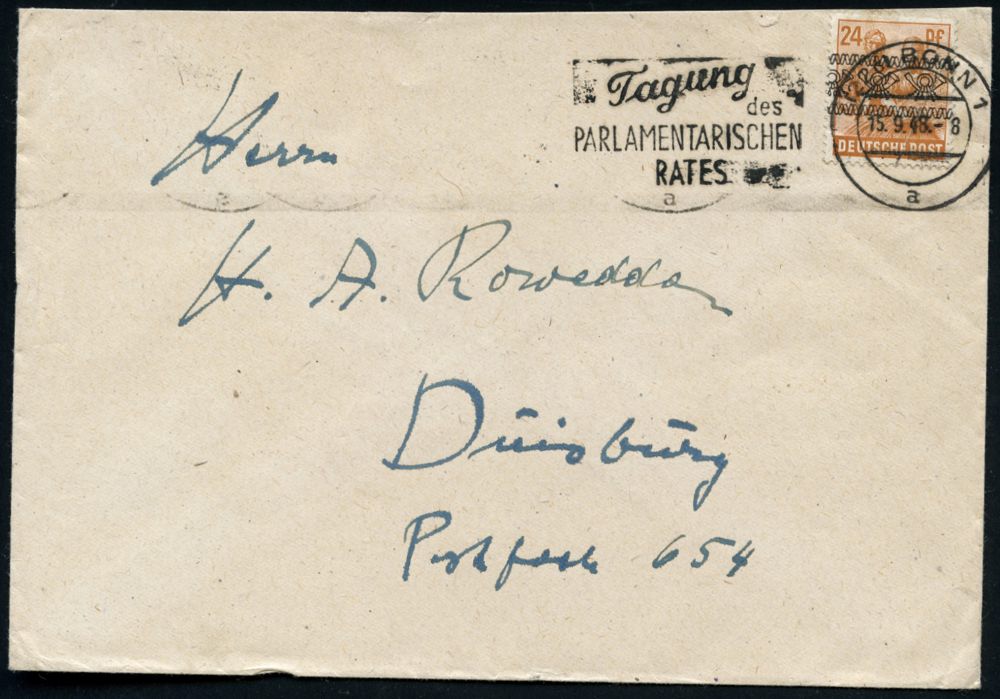 24 PF
BONN 1
15.9.48.-8
a
DEUTSCHE POST
Tagung
des
PARLAMENTARISCHEN
RATES
a
Herrn
H. A. Rowedder
Duisburg
Postfach 654